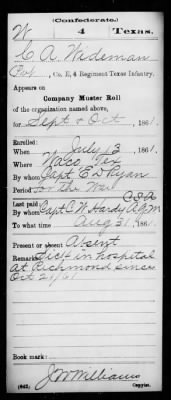 (Confederate.)
W 4 Texas.
C A Wideman
Pvt, Co. E, 4 Regiment Texas Infantry.
Appears on
Company Muster Roll
of the organization named above,
for Sept & Oct, 1861.
Enrolled:
When July 13, 1861.
Where Waco Tex
By whom Capt E D Ryan
Period For the War
Last paid: C S A
By whom Capt C W Hardy A Q M
To what time Aug 31, 1861.
Present or absent Absent
Remarks: Sick in hospital
at Richmond since
Oct 21/61
Book mark:
J W Williams
(642) Copyist.